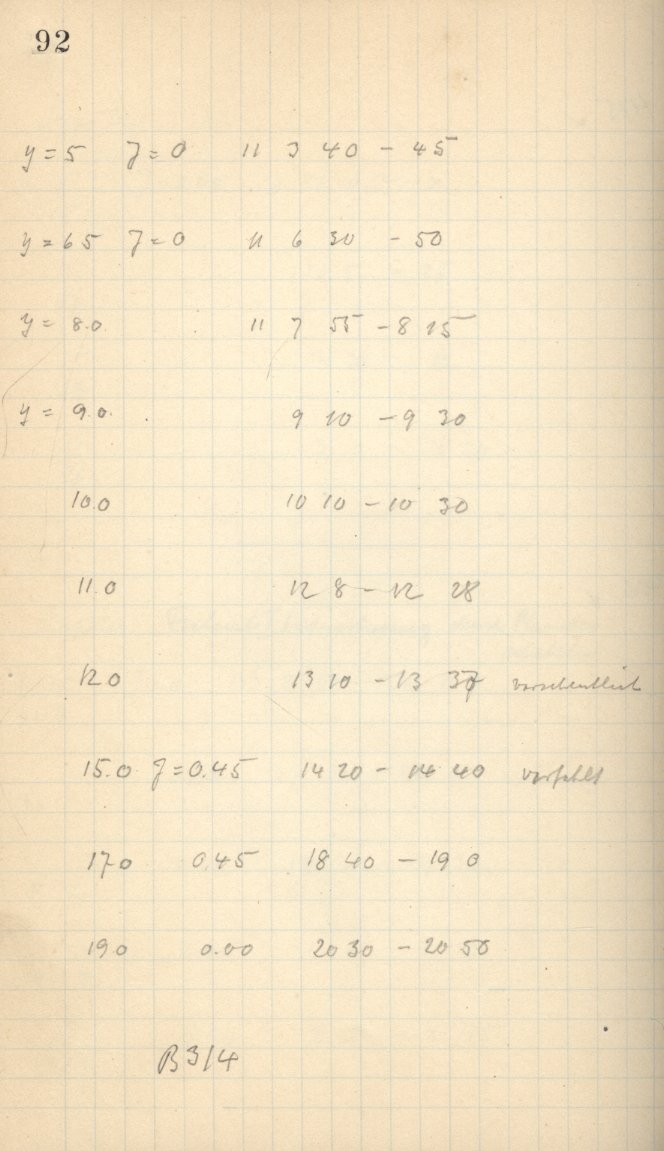 92
y = 5 J = 0 11 3 40 - 45
y = 65 J = 0 11 6 30 - 50
y = 8.0 11 7 55 - 8 15
y = 9.0. 9 10 - 9 30
10.0 10 10 - 10 30
11.0 12 8 - 12 28
12.0 13 10 - 13 37 versehentlich
15.0 J = 0.45 14 20 - 14 40 verfehlt
17.0 0.45 18 40 - 19 0
19.0 0.00 20 30 - 20 50
B 3/4